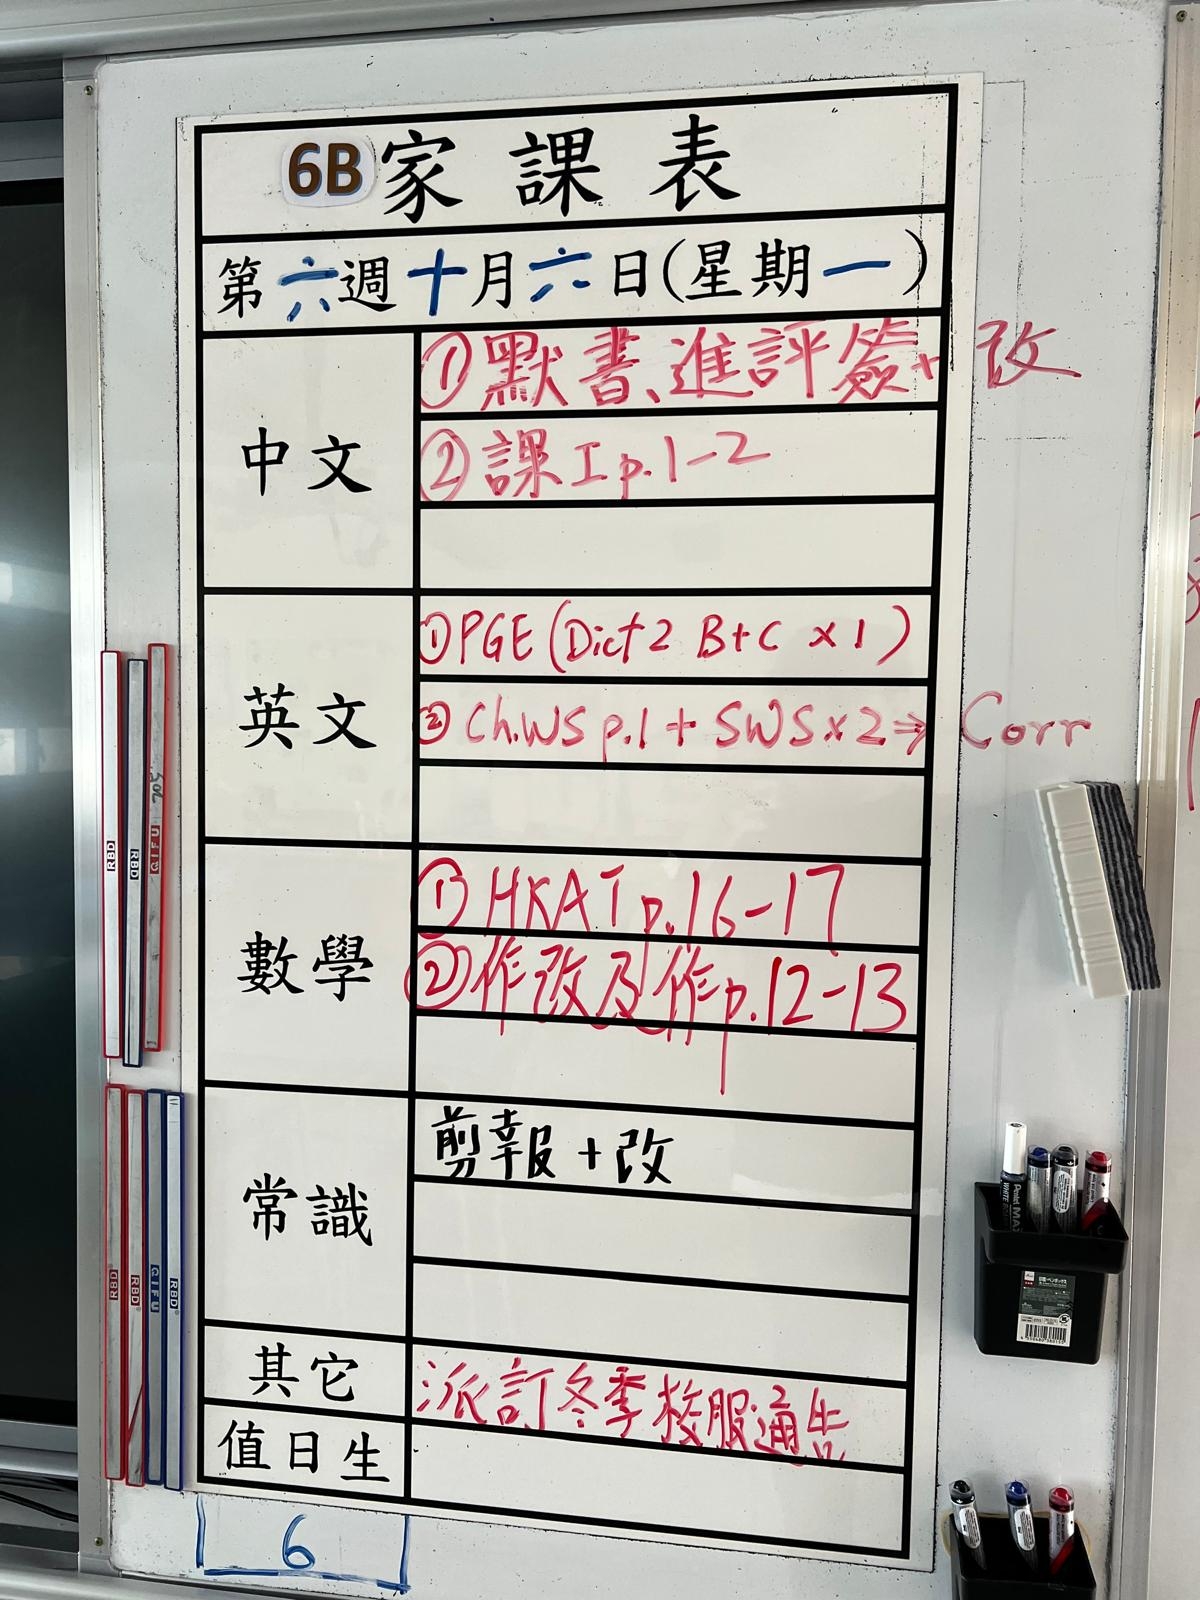 6B 家課表
第六週十月六日(星期一)
中文
①默書、進評簽+改
②課工p.1-2
英文
①PGE (Dict 2 B+C x1)
②Ch.WS p.1 + SWS x2 ⇒ Corr
數學
①HKAT p.16-17
②作改及作p.12-13
常識
剪報+改
其它
派訂冬季校服通告
值日生
6
RBD
RBD
QIFU
RBD
RBD
QIFU
RBD
Pentel
WHITE